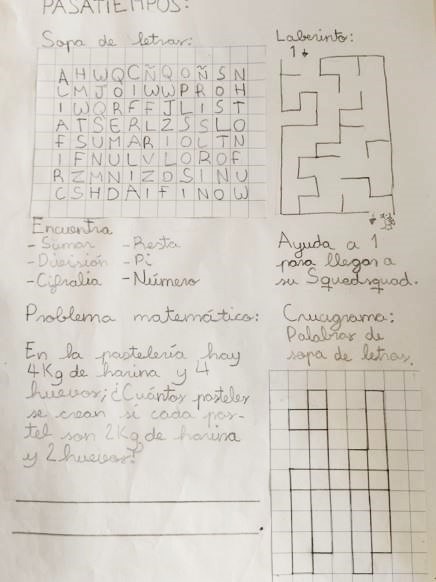 PASATIEMPOS:
Sopa de letras:
A H W Q C Ñ Q O Ñ S N
C M J O I W W P R O H
I W Q R F F J L I S T
A T S E R L Z S S L O
F S U M A R I O L T N
I F N U L V L O R O F
R Z M N I Z D S I N U
C S H D A I F I N O W
Encuentra
- Sumar - Resta
- División - Pi
- Cifralia - Número
Laberinto:
1
Ayuda a 1
para llegar a
su Squadsquad.
Problema matemático:
En la pastelería hay
4Kg de harina y 4
huevos; ¿Cuántos pasteles
se crean si cada pas-
tel son 2Kg de harina
y 2 huevos?
Crucigrama:
Palabras de
sopa de letras.